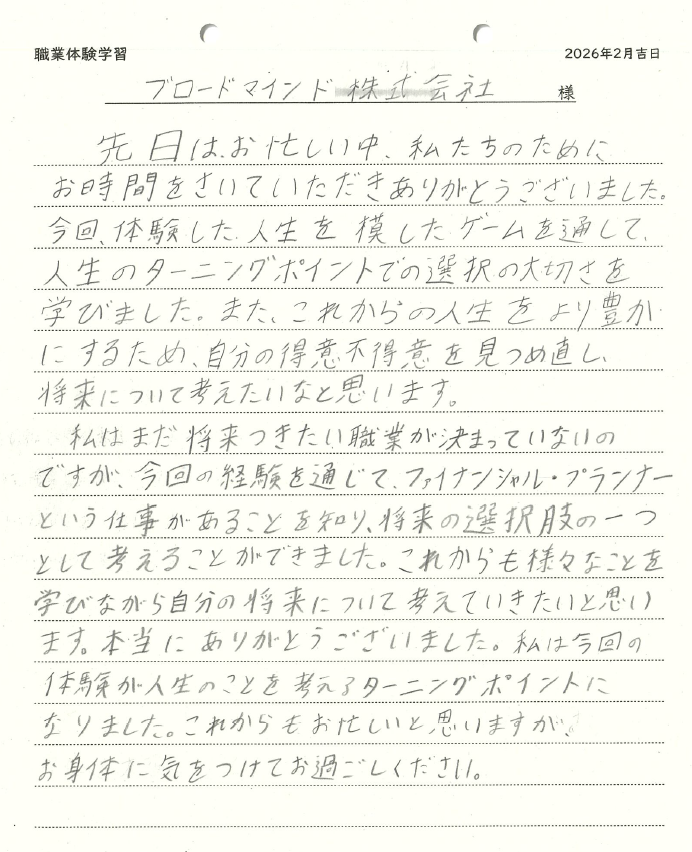 職業体験学習
2026年2月吉日
ブロードマインド株式会社 様
先日は、お忙しい中、私たちのために
お時間をさいていただきありがとうございました。
今回、体験した人生を模したゲームを通して、
人生のターニングポイントでの選択の大切さを
学びました。また、これからの人生をより豊か
にするため、自分の得意不得意を見つめ直し、
将来について考えたいなと思います。
私はまだ将来つきたい職業が決まっていないの
ですが、今回の経験を通じて、ファイナンシャル・プランナー
という仕事があることを知り、将来の選択肢の一つ
として考えることができました。これからも様々なことを
学びながら自分の将来について考えていきたいと思い
ます。本当にありがとうございました。私は今回の
体験が人生のことを考えるターニングポイントに
なりました。これからもお忙しいと思いますが、
お身体に気をつけてお過ごしください。